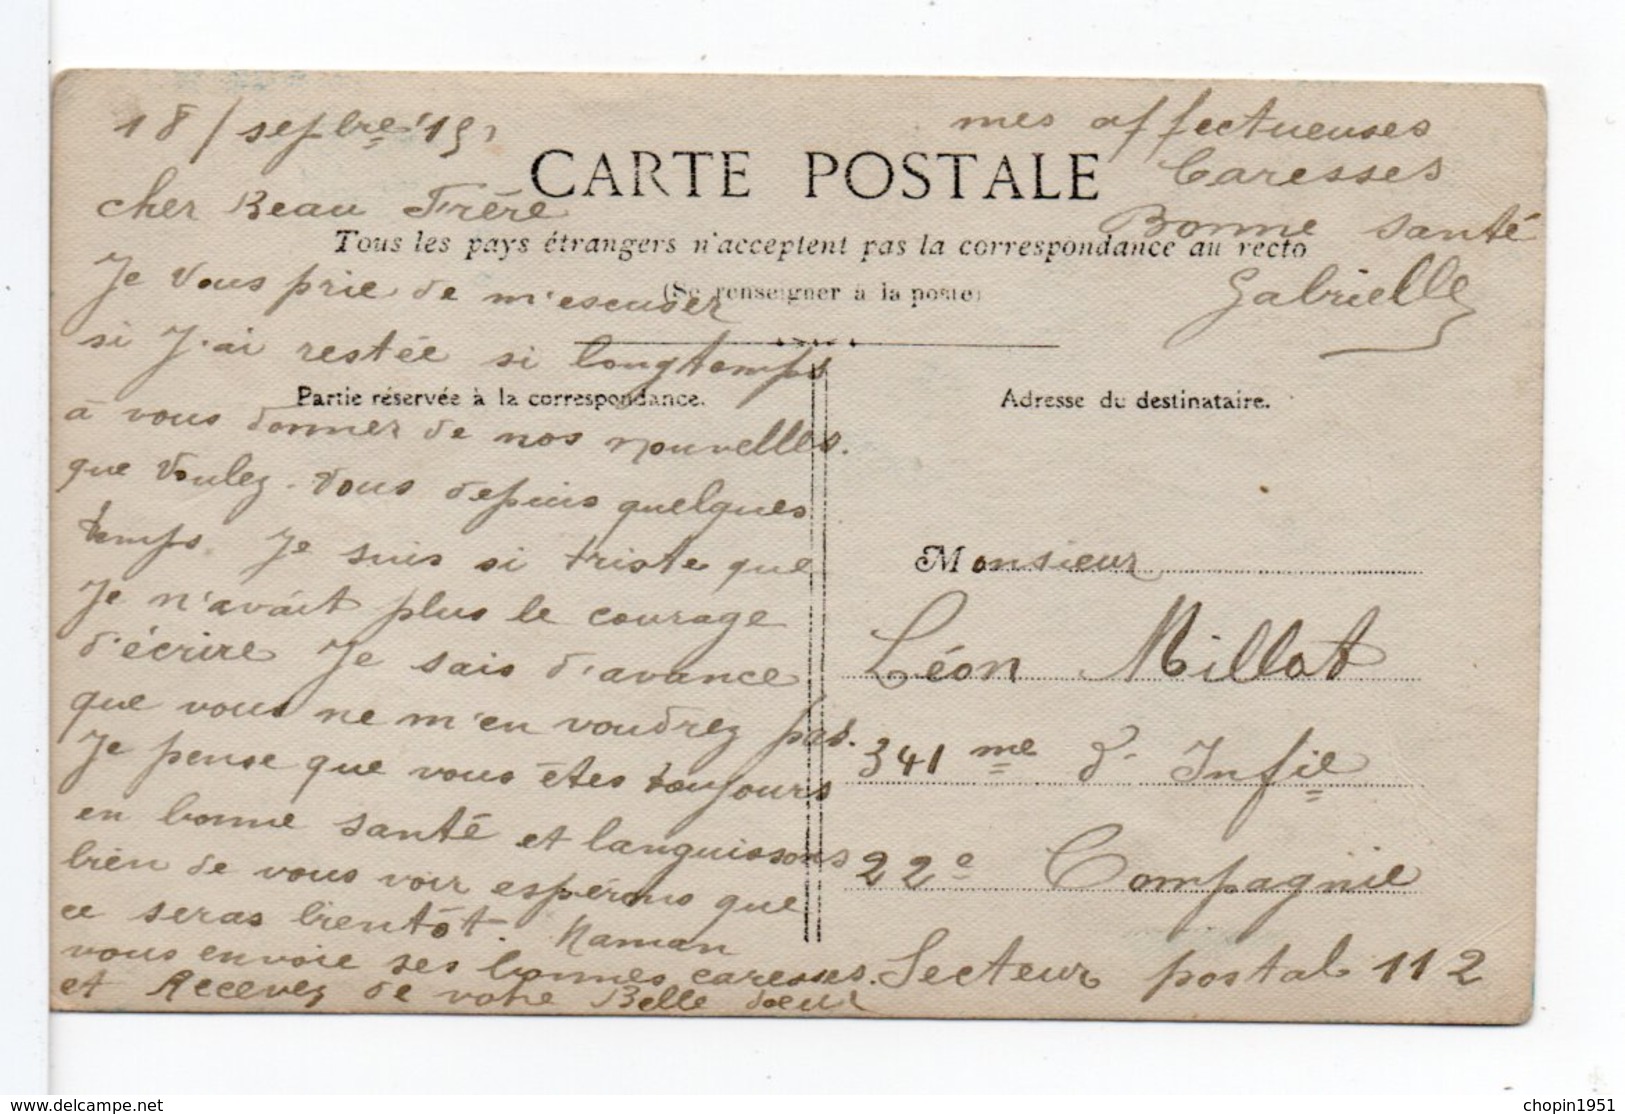 18/sepbre 15
CARTE POSTALE
Tous les pays étrangers n'acceptent pas la correspondance au recto
(Se renseigner à la poste)
Partie réservée à la correspondance.
Adresse du destinataire.
cher Beau Frère
Je vous prie de m'escuser
si J'ai restée si longtemps
à vous donner de nos nouvelles.
que voulez-vous depuis quelques
temps. Je suis si triste que
Je n'avait plus le courage
d'écrire Je sais d'avance
que vous ne m'en voudrez pas.
Je pense que vous êtes toujours
en bonne santé et languissons
bien de vous voir espérons que
ce seras bientôt. Maman
vous envoie ses bonnes caresses.
et Recevez de votre Belle sœur
mes affectueuses
Caresses
Bonne santé
Gabrielle
Monsieur
Léon Millot
341 me d'Infie
22e Compagnie
Secteur postal 112
delcampe.net
chopin1951